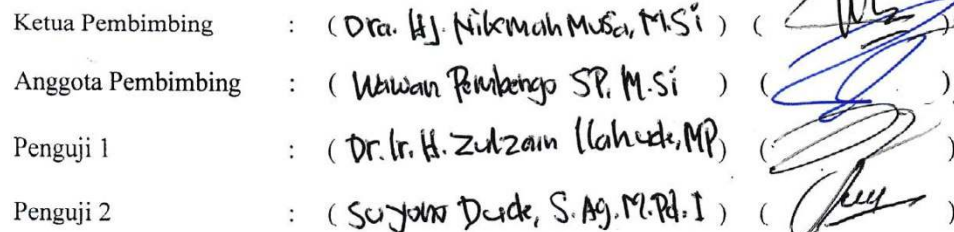 Ketua Pembimbing : ( Dra. Hj. Nikmah Musa, M.Si ) ( )
Anggota Pembimbing : ( Wawan Pembengo SP, M.Si ) ( )
Penguji 1 : ( Dr. Ir. H. Zulzain Ilahude, MP ) ( )
Penguji 2 : ( Suyono Dude, S.Ag. M.Pd.I ) ( )